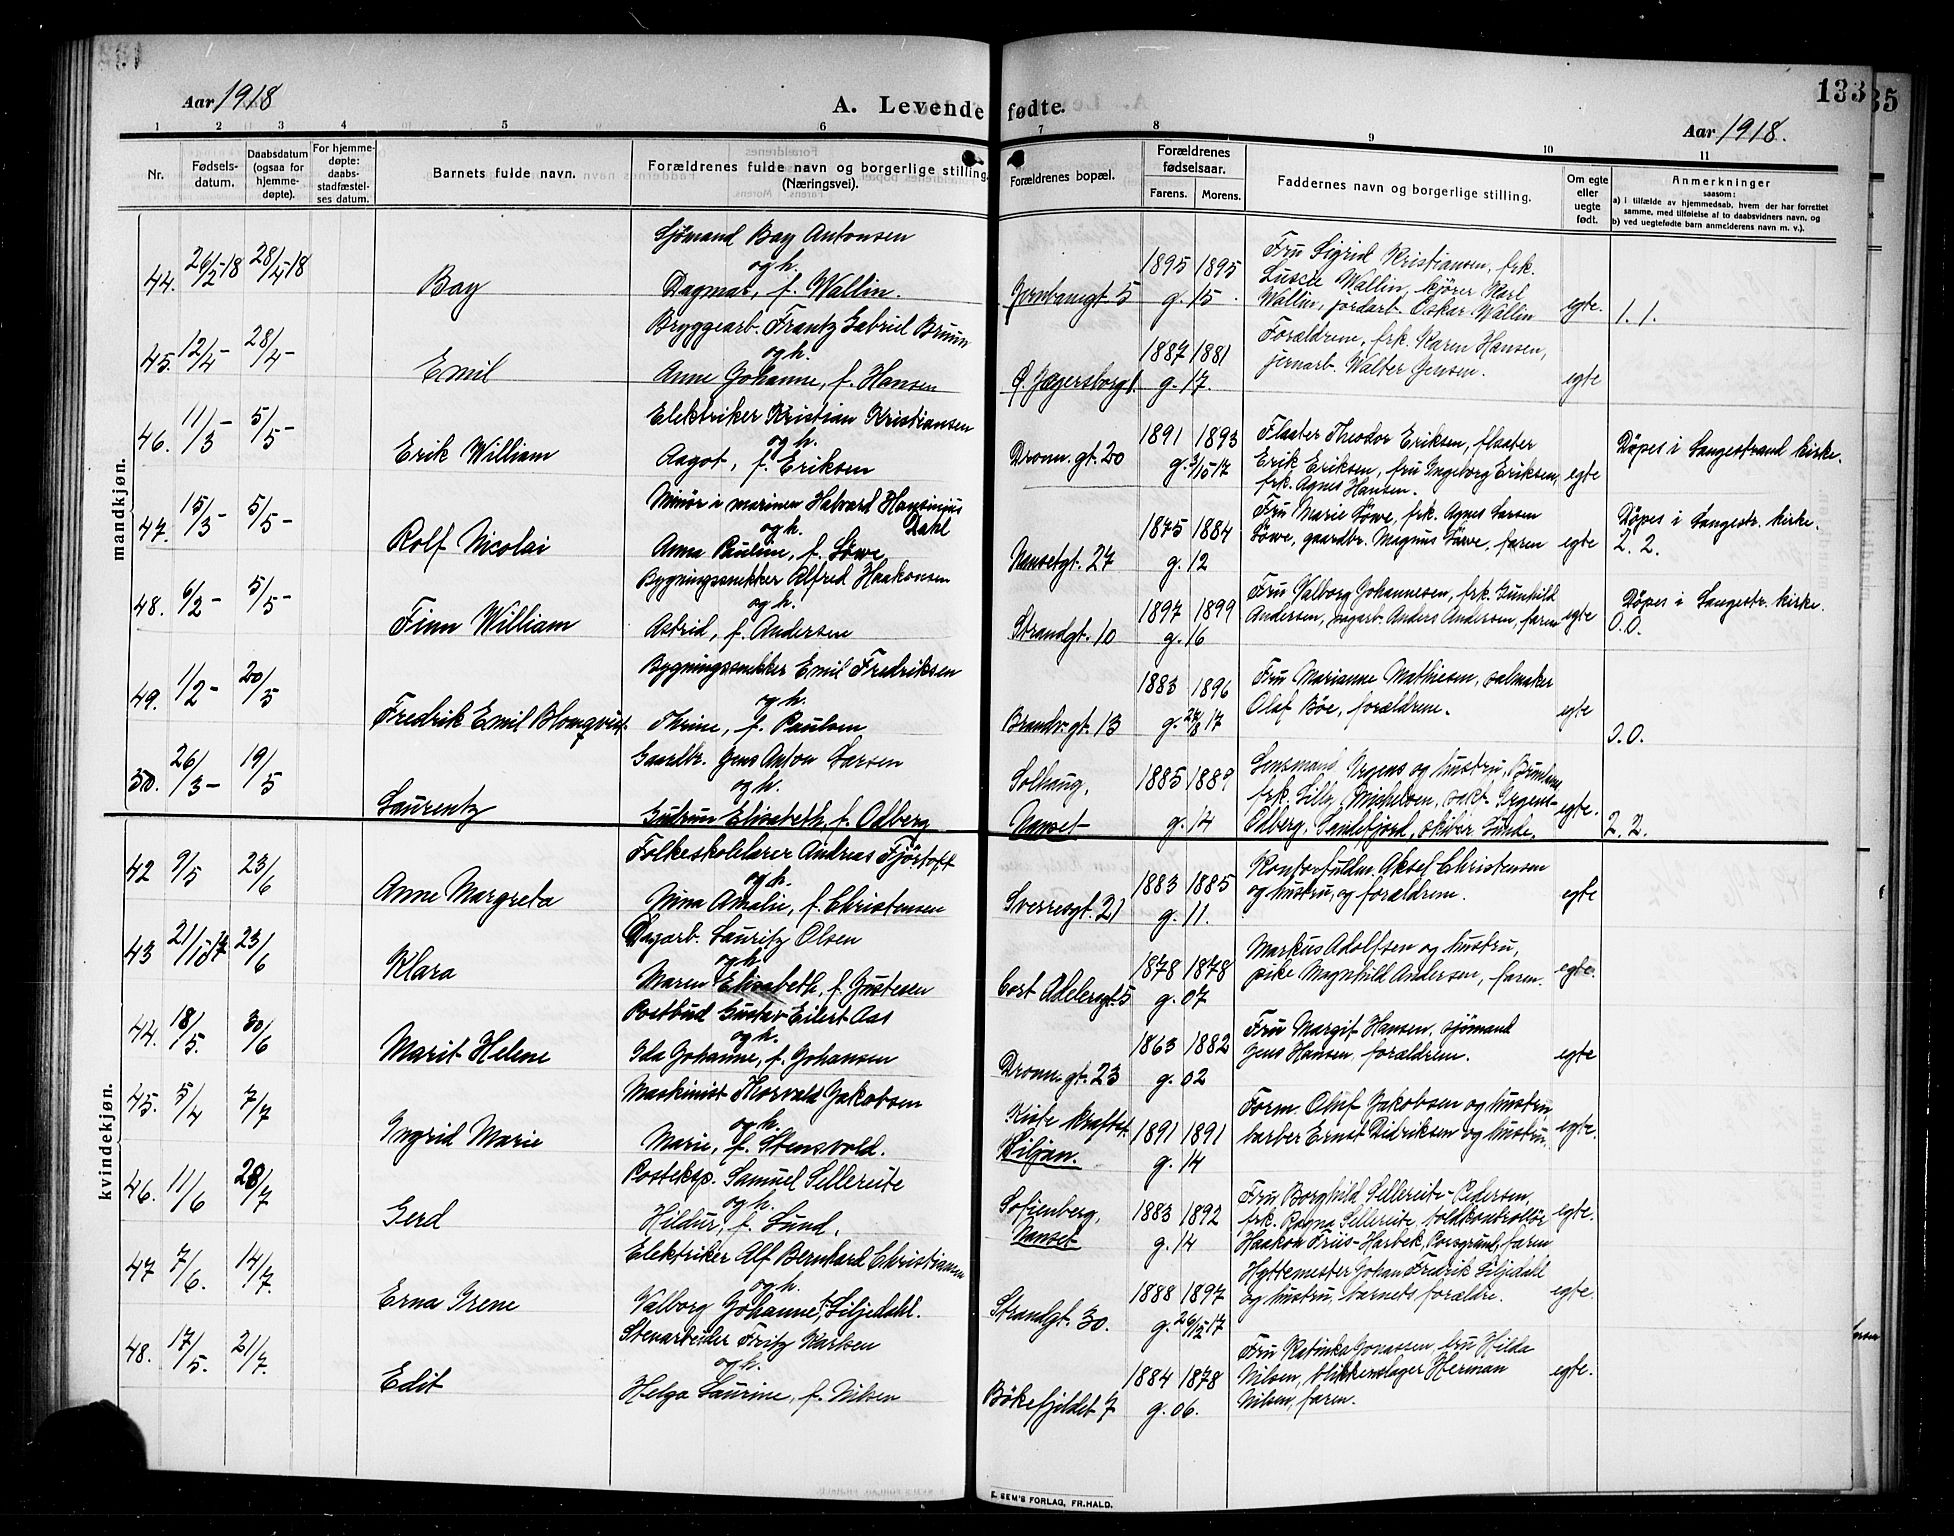 133
35
Aar 1918
A. Levende fødte.
Aar 1918.
1 2 3 4 5 6 7 8 9 10 11
Nr.
Fødsels-
datum.
Daabsdatum
(ogsaa for
hjemme-
døpte).
For hjemme-
døpte:
daabs-
stadfæstel-
ses datum.
Barnets fulde navn.
Forældrenes fulde navn og borgerlige stilling
(Næringsvei).
Forældrenes bopæl.
Forældrenes
fødselsaar.
Farens. Morens.
Faddernes navn og borgerlige stilling.
Om egte
eller
uegte
født.
Anmerkninger
saasom:
a) i tilfælde av hjemmedaab, hvem der har forrettet
samme, med tilføielse af to daabsvidners navn, og
b) ved uegtefødte barn anmelderens navn m. v.).
mandkjøn.
44. 26/2-18 28/4-18
Bay
Sjømand Bay Antonsen
og h.
Dagmar, f. Wallin.
Jernbanegt. 5
1895 1895
g. 15.
Fru Sigrid Kristiansen, frk.
Luscie Wallin, kjører Karl
Wallin, jordarb. Oskar Wallin
egte.
1. 1.
45. 12/4- 28/4-
Emil
Bryggearb. Frantz Gabriel Bruun
og h.
Anne Johanne, f. Hansen
Ø. Jegersborgt.
1887 1881
g. 17.
Forældrene, frk. Karen Hansen,
jernarb. Walter Jensen.
egte
46. 11/3- 5/5-
Erik William
Elektriker Kristian Kristiansen
og h.
Aagot, f. Eriksen
Dronn. gt. 20
1891 1893
g. 3/10 17
Flaater Theodor Eriksen, flaater
Erik Eriksen, fru Ingeborg Eriksen,
frk. Agnes Hansen.
egte
Døpes i Langestrand kirke.
47. 15/3- 5/5-
Rolf Nicolai
Minør i marinen Halvard Hansinius
og h. Dahl
Anna Pauline, f. Løwe
Nansetgt. 27
1875 1884
g. 12
Fru Marie Løwe, frk. Agnes Larsen
Løwe, gaardbr. Magnus Løwe, faren
egte
Døpes i Langestr. kirke.
2. 2.
48. 6/2- 5/5-
Finn William
Bygningssnekker Alfred Haakonsen
og h.
Astrid, f. Andersen
Strandgt. 10
1897 1899
g. 16
Fru Valborg Johannesen, frk. Gunhild
Andersen, Anders Andersen, faren
egte
Døpes i Langestr. kirke.
0.0.
49. 1/2- 20/5
Fredrik Emil Blomqvist.
Bygningssnekker Emil Fredriksen
og h.
Thrine, f. Paulsen
Brandv. gt. 13
1883 1896
g. 27/8 17
Fru Marianne Mathisen, salmaker
Olaf Bøe, forældrene.
egte
0.0.
50. 26/3- 19/5
Laurentz
Gaardbr. Jens Anton Larsen
og h.
Gudrun Elisabeth, f. Odberg
Solhaug,
Nanset
1885 1889
g. 14
Lensmand Jrgens og hustru, Brunlanes,
frk. Lilly Michelsen, Jrgens-
Odberg, Sandefjord, skiber Linde,
egte.
2. 2.
kvindekjøn.
42 9/5 23/6
Anne Margreta
Folkeskolelærer Andreas Fjörtoft
og h.
Nina Amalie, f. Christensen
Sverresgt. 21
1883 1885
g. 11.
Kontorfuldm. Aksel Christensen
og hustru, og forældrene.
egte
43 21/10 17. 23/6
Klara
Dagarb. Lauritz Olsen
og h.
Maren Elisabeth, f. Justesen
Cort Adelersgt. 5
1878 1878
g. 07
Markus Adolfsen og hustru,
pike Magnhild Andersen, faren.
egte.
44. 18/5. 30/6
Marit Helene
Postbud Gustav Eilert Aas
og h.
Ida Johanne, f. Johansen
Dronn. gt. 23
1863 1882
g. 02
Fru Margit Hansen, sjömand
Jens Hansen, forældrene.
egte
45. 5/4 7/7
Ingrid Marie
Maskinist Thorvald Jakobsen
og h.
Marie, f. Stensvold.
Kiste kraftst.
Kiljan.
1891 1891
g. 14
Form. Oluf Jakobsen og hustru,
barber Ernst Didriksen og hustru,
egte.
46. 11/6 28/7
Gerd
Posteksp. Samuel Sellereite
og h.
Hildur, f. Lund.
Sofienberg,
Nanset
1883 1892
g. 14
Fru Borghild Sellereite-Pedersen,
frk. Ragna Sellereite, toldkontrollør
Haakon Friis-Harbek, Porsgrund, faren
egte.
47 7/6. 14/7.
Erna Irene
Elektriker Alf Bernhard Christiansen
og h.
Valborg Johanne, f. Liljedahl.
Strandgt. 30.
1888 1897
g. 26/12 17
Hyttemester Johan Fredrik Liljedahl
og hustru, barnets forældre.
egte.
48. 17/5. 21/7.
Edit
Stenarbeider Fritz Karlsen
og h.
Helga Laurine, f. Nilsen
Bökefjeldet 7
1884 1878
g. 06.
Fru Katinka Jonassen, fru Hilda
Nilsen, blikkenslager Herman
Nilsen, faren.
egte.
E. SEM'S FORLAG, FR.HALD.